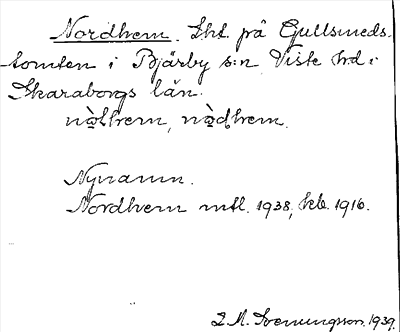 Nordhem. Lht. på Gullsmeds-
tomten i Bjärby s:n Viste hd i
Skaraborgs län.
Nynamn.
Nordhem mtl. 1938, hfb. 1916.
S. M. Svenungsson. 1939.